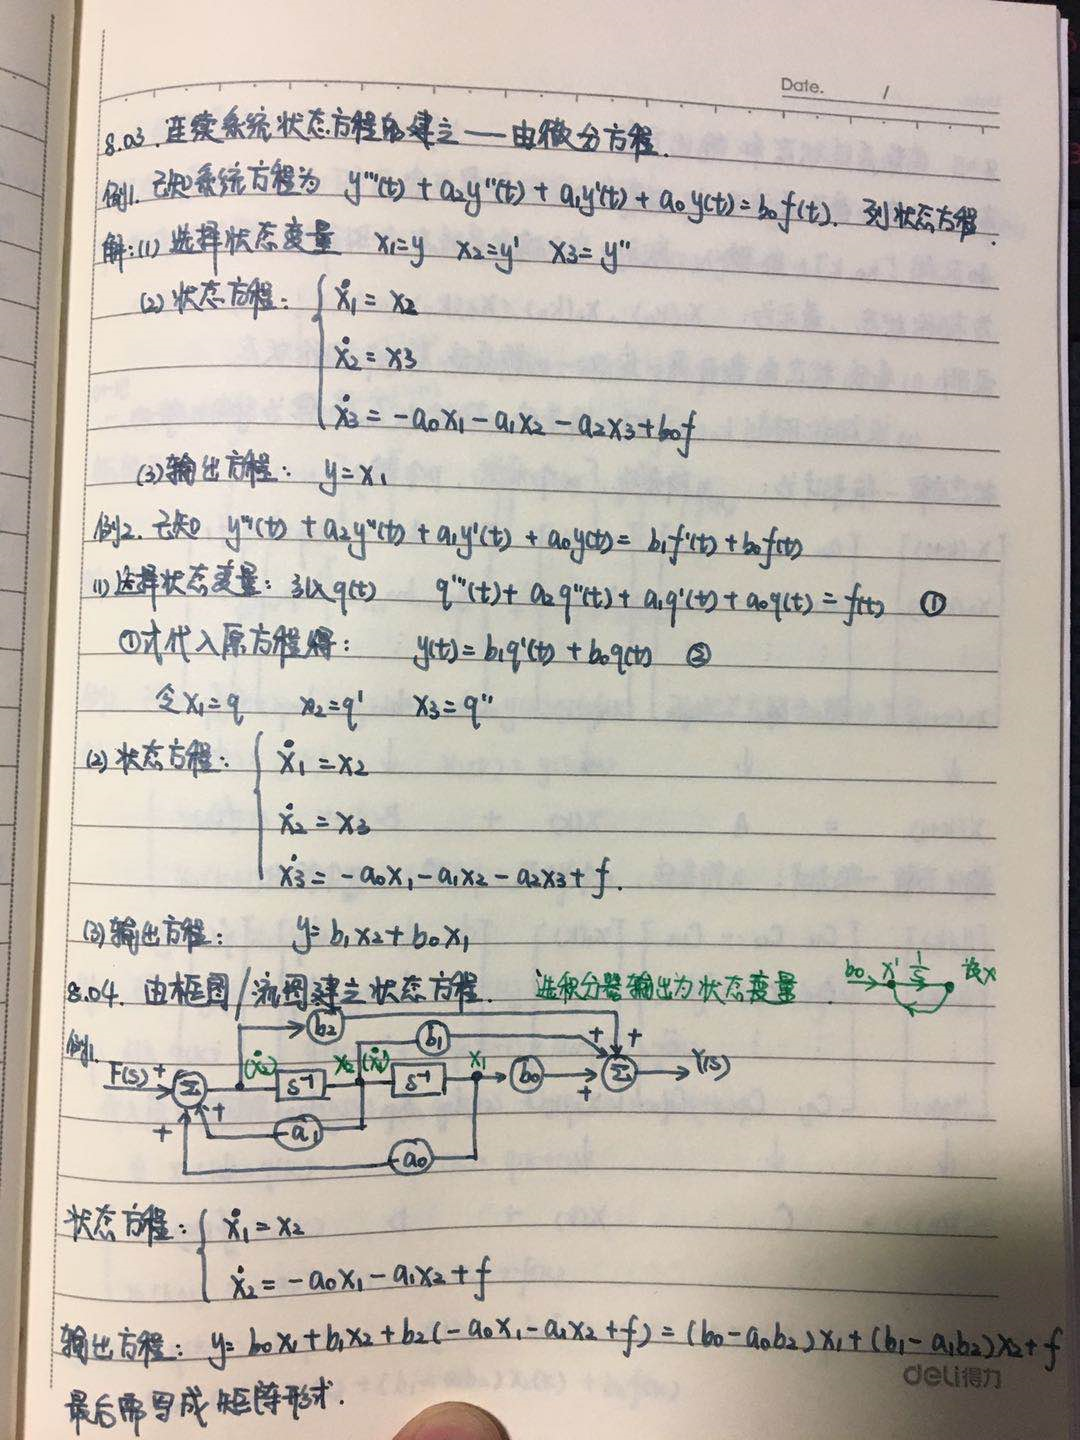 Date. /
8.03. 连续系统状态方程的建立——由微分方程.
例1. 已知系统方程为 y'''(t) + a₂y''(t) + a₁y'(t) + a₀y(t) = b₀f(t). 列状态方程.
解:(1) 选择状态变量 x₁=y x₂=y' x₃=y''
(2) 状态方程: { ẋ₁ = x₂
ẋ₂ = x₃
ẋ₃ = -a₀x₁ - a₁x₂ - a₂x₃ + b₀f
(3) 输出方程: y = x₁
例2. 已知 y'''(t) + a₂y''(t) + a₁y'(t) + a₀y(t) = b₁f'(t) + b₀f(t)
(1) 选择状态变量: 引入q(t) q'''(t) + a₂q''(t) + a₁q'(t) + a₀q(t) = f(t) ①
①式代入原方程得: y(t) = b₁q'(t) + b₀q(t) ②
令x₁=q x₂=q' x₃=q''
(2) 状态方程: { ẋ₁ = x₂
ẋ₂ = x₃
ẋ₃ = -a₀x₁ - a₁x₂ - a₂x₃ + f.
(3) 输出方程: y = b₁x₂ + b₀x₁
8.04. 由框图/流图建立状态方程. 选积分器输出为状态变量. b₀ x' 1/s 设x
例1. F(s) + Σ (ẋ₂) s⁻¹ x₂ (ẋ₁) s⁻¹ x₁ b₀ + Σ Y(s)
b₂ b₁ + +
+ + -a₁
-a₀
状态方程: { ẋ₁ = x₂
ẋ₂ = -a₀x₁ - a₁x₂ + f
输出方程: y = b₀x₁ + b₁x₂ + b₂(-a₀x₁ - a₁x₂ + f) = (b₀ - a₀b₂)x₁ + (b₁ - a₁b₂)x₂ + f
最后需写成矩阵形式.
deli得力